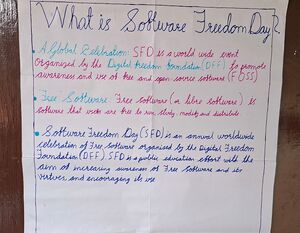 What is Software Freedom Day?
A Global Celebration: SFD is a world wide event
Organized by the Digital Freedom Foundation (DFF) to promote
awareness and use of free and open source software (FOSS)
Free Software Free software (or libre software) is
software that users are free to run, study, modify and distribute
Software Freedom Day (SFD) is an annual worldwide
celebration of Free Software organised by the Digital Freedom
Foundation (DFF). SFD is a public education effort with the
aim of increasing awareness of Free Software and its
virtues, and encouraging its use